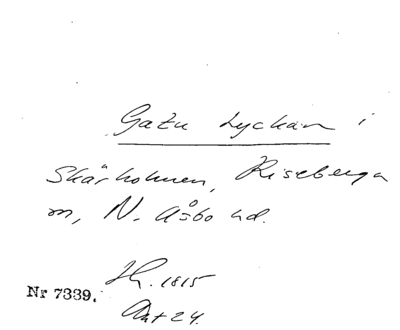 Gatu Lyckan i
Skärholmen, Riseberga
m, N. Åsbo hd.
Nr 7339.
1815
Akt 24.